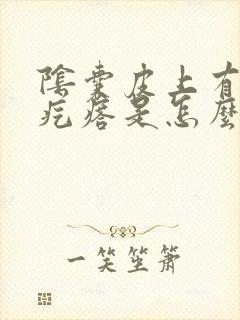 陰囊皮上有
疙瘩是怎麼
一笑坐簫